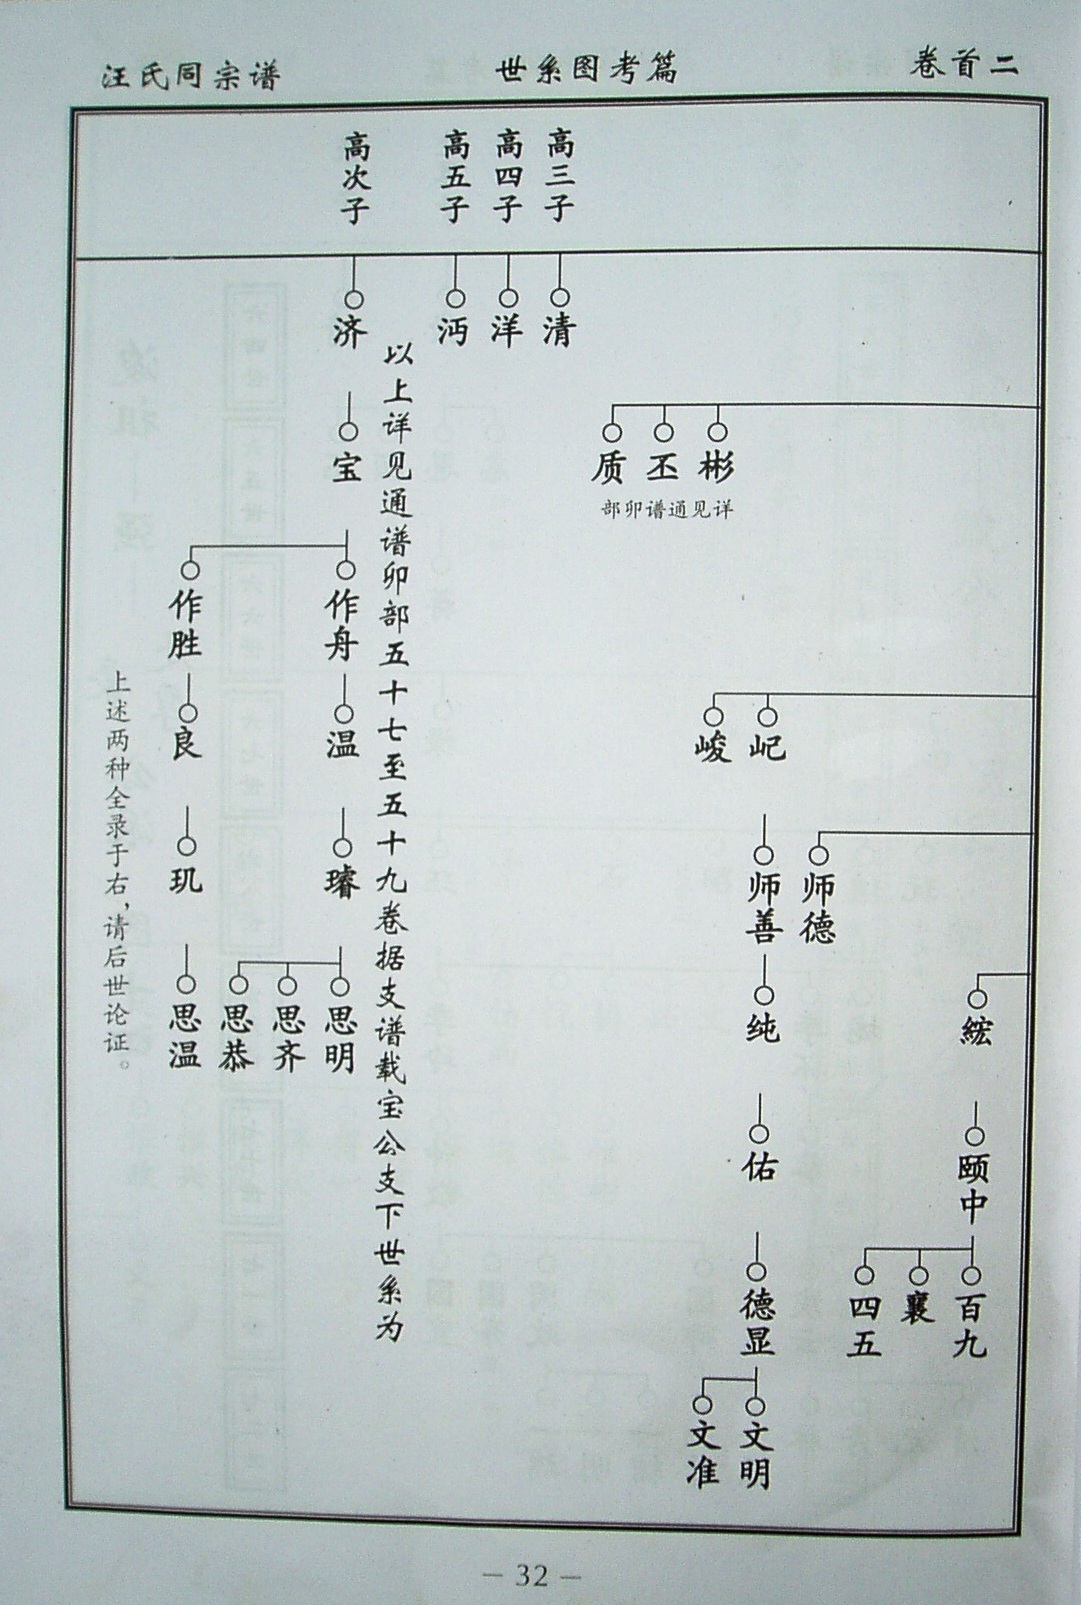 汪氏同宗谱
世系图考篇
卷首二
高三子
高四子
高五子
高次子
清
洋
沔
济
彬
丕
质
详见通谱卯部
屺
峻
师德
师善
纯
佑
德显
文明
文准
綋
颐中
百九
襄
四五
以上详见通谱卯部五十七至五十九卷据支谱载宝公支下世系为
宝
作舟
作胜
温
良
璿
玑
思明
思齐
思恭
思温
上述两种全录于右，请后世论证。
— 32 —